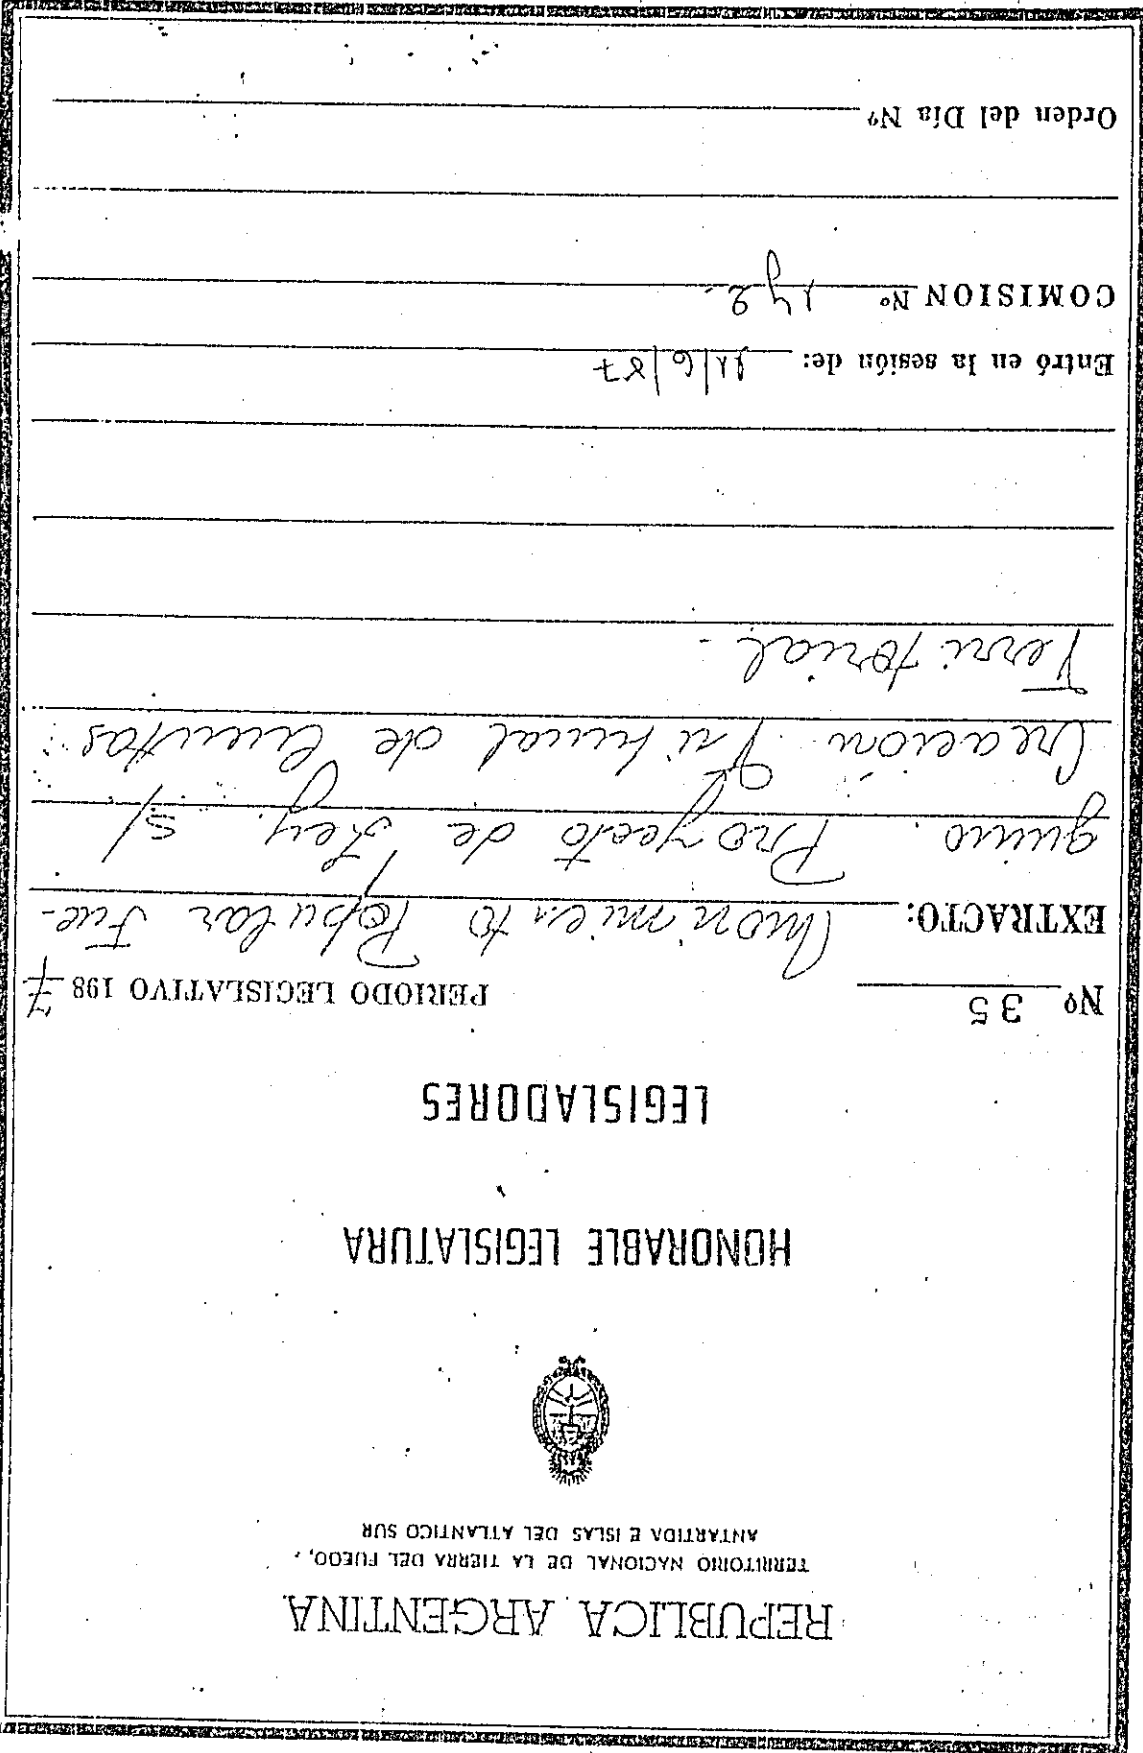 REPUBLICA ARGENTINA
TERRITORIO NACIONAL DE LA TIERRA DEL FUEGO,
ANTARTIDA E ISLAS DEL ATLANTICO SUR
HONORABLE LEGISLATURA
LEGISLADORES
Nº 35 PERIODO LEGISLATIVO 1987
EXTRACTO: Movimiento Popular Fue-
guino. Proyecto de Ley s/
Creación Tribunal de Cuentas
Territorial.-
Entró en la sesión de: 11/6/87
COMISION Nº 1 y 2.-
Orden del Día Nº